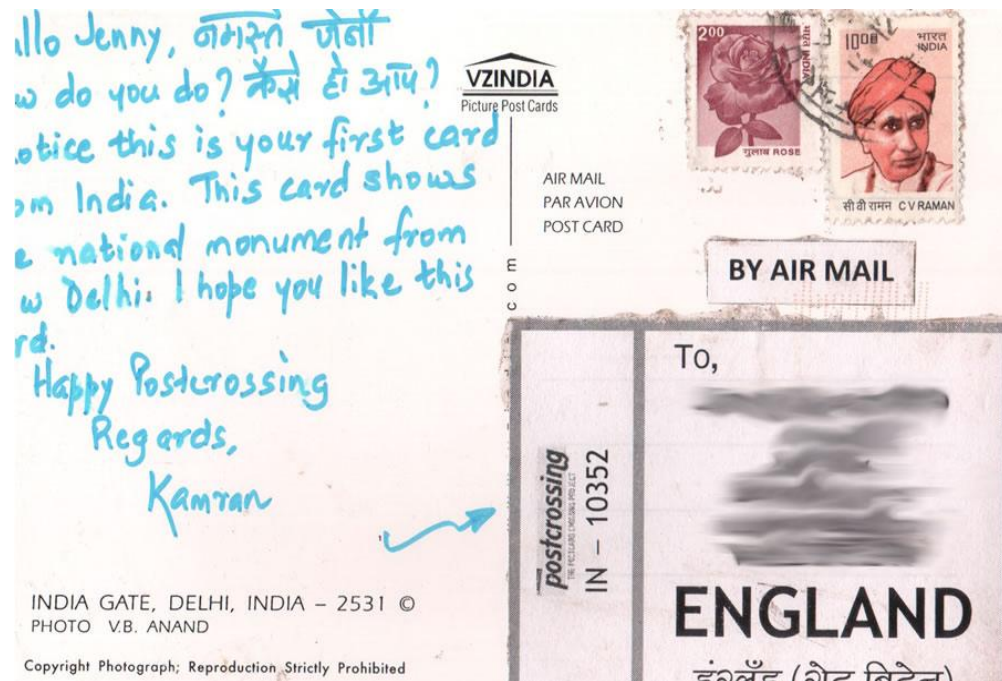 llo Jenny, नमस्ते जेनी
w do you do? कैसे हो आप?
otice this is your first card
om India. This card shows
e national monument from
w Delhi. I hope you like this
rd.
Happy Postcrossing
Regards,
Kamran
INDIA GATE, DELHI, INDIA – 2531 ©
PHOTO V.B. ANAND
Copyright Photograph; Reproduction Strictly Prohibited
VZINDIA
Picture Post Cards
com
AIR MAIL
PAR AVION
POST CARD
2.00
भारत INDIA
गुलाब ROSE
1000
भारत
INDIA
सी वी रामन C V RAMAN
BY AIR MAIL
postcrossing
THE POSTCARD CROSSING PROJECT
IN – 10352
To,
ENGLAND
इंग्लैंड (ग्रेट ब्रिटेन)